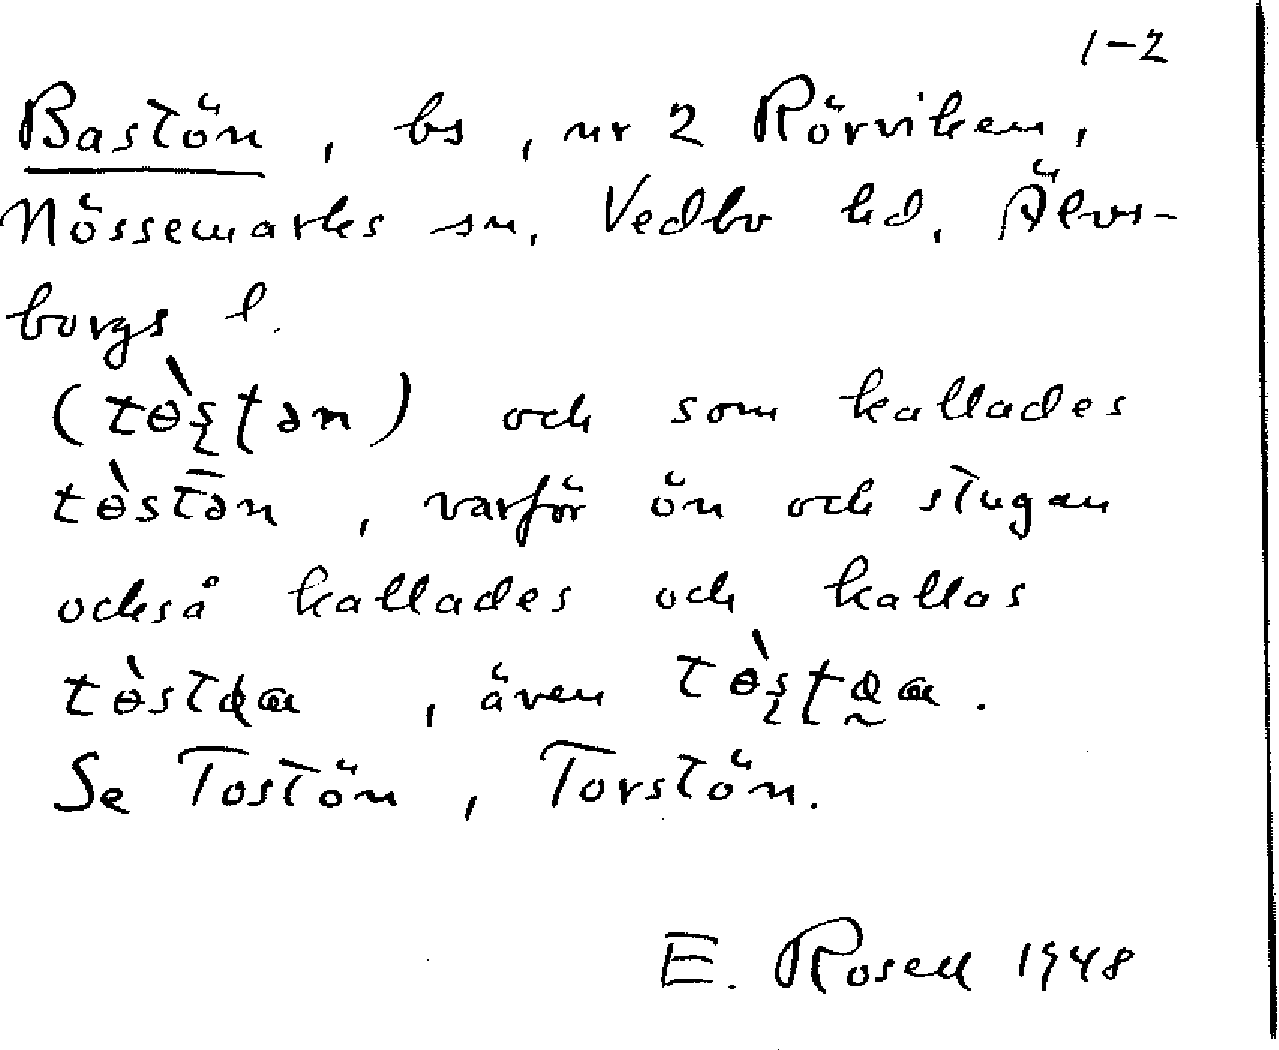 1-2
Bastön, bs, nr 2 Rörviken,
Nössemarks sn, Vedbo hd, Älvs-
borgs l.
(tɵ̀ʂʈən) och som kallades
tɵ̀stən, varför ön och stugan
också kallades och kallas
, även
Se Tostön, Torstön.
E. Rosell 1948